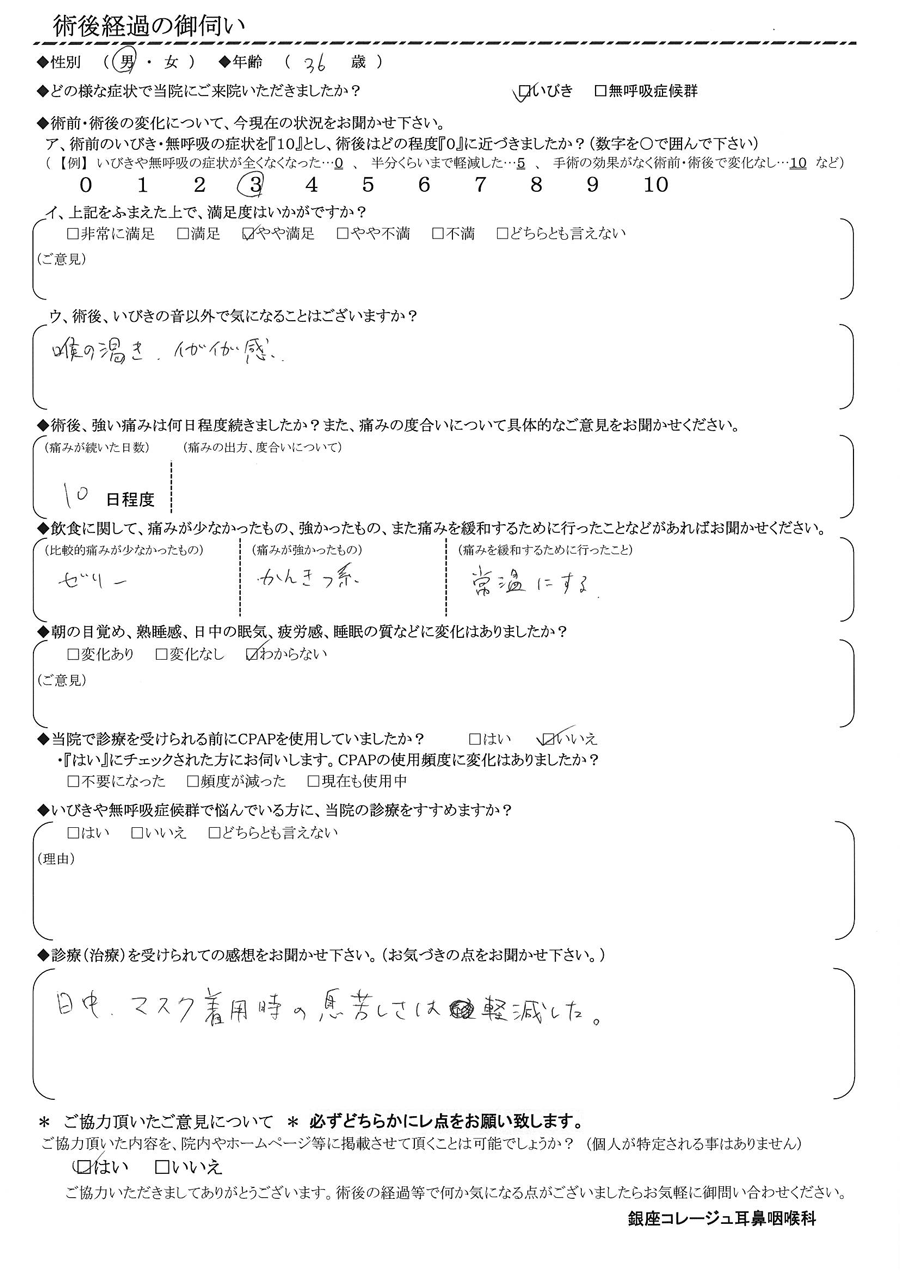 術後経過の御伺い
◆性別 （ 男 ・ 女 ） ◆年齢 （ 36 歳 ）
◆どの様な症状で当院にご来院いただきましたか？ ☑いびき □無呼吸症候群
◆術前・術後の変化について、今現在の状況をお聞かせ下さい。
ア、術前のいびき・無呼吸の症状を『10』とし、術後はどの程度『0』に近づきましたか？（数字を〇で囲んで下さい）
（ 【例】 いびきや無呼吸の症状が全くなくなった…0 、 半分くらいまで軽減した…5 、 手術の効果がなく術前・術後で変化なし…10 など）
0 1 2 3 4 5 6 7 8 9 10
イ、上記をふまえた上で、満足度はいかがですか？
□非常に満足 □満足 ☑やや満足 □やや不満 □不満 □どちらとも言えない
（ご意見）
ウ、術後、いびきの音以外で気になることはございますか？
喉の渇き、イガイガ感、
◆術後、強い痛みは何日程度続きましたか？また、痛みの度合いについて具体的なご意見をお聞かせください。
（痛みが続いた日数） （痛みの出方、度合いについて）
10 日程度
◆飲食に関して、痛みが少なかったもの、強かったもの、また痛みを緩和するために行ったことなどがあればお聞かせください。
（比較的痛みが少なかったもの） （痛みが強かったもの） （痛みを緩和するために行ったこと）
ゼリー かんきつ系、 常温にする。
◆朝の目覚め、熟睡感、日中の眠気、疲労感、睡眠の質などに変化はありましたか？
□変化あり □変化なし ☑わからない
（ご意見）
◆当院で診療を受けられる前にCPAPを使用していましたか？ □はい ☑いいえ
・『はい』にチェックされた方にお伺いします。CPAPの使用頻度に変化はありましたか？
□不要になった □頻度が減った □現在も使用中
◆いびきや無呼吸症候群で悩んでいる方に、当院の診療をすすめますか？
□はい □いいえ □どちらとも言えない
（理由）
◆診療（治療）を受けられての感想をお聞かせ下さい。（お気づきの点をお聞かせ下さい。）
日中、マスク着用時の息苦しさは軽減した。
＊ ご協力頂いたご意見について ＊ 必ずどちらかにレ点をお願い致します。
ご協力頂いた内容を、院内やホームページ等に掲載させて頂くことは可能でしょうか？ （個人が特定される事はありません）
☑はい □いいえ
ご協力いただきましてありがとうございます。術後の経過等で何か気になる点がございましたらお気軽に御問い合わせください。
銀座コレージュ耳鼻咽喉科